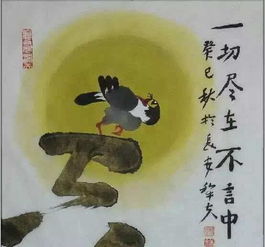 一切尽在不言中
癸巳秋於长安